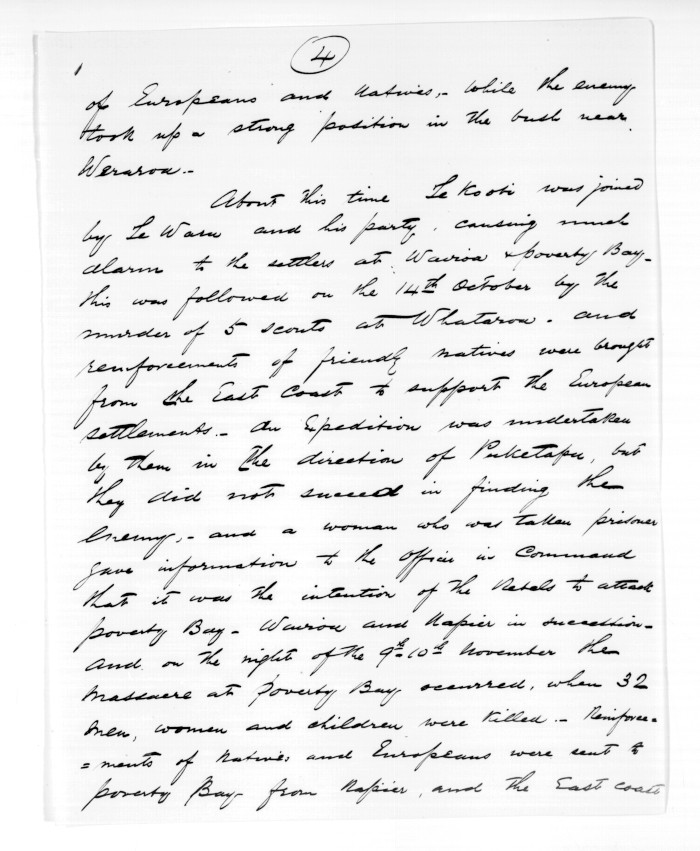 4
of Europeans and Natives,- while the enemy
took up a strong position in the bush near
Weraroa.-
About this time Te Kooti was joined
by Te Waru and his party, causing much
alarm to the settlers at Wairoa & poverty Bay-
this was followed on the 14th October by the
murder of 5 scouts at Whataroa. and
reinforcements of friendly natives were brought
from the East Coast to support the European
settlements.- An Expedition was undertaken
by them in the direction of Puketapu, but
they did not succeed in finding the
Enemy,- and a woman who was taken prisoner
gave information to the Officer in Command
that it was the intention of the Rebels to attack
poverty Bay- Wairoa and Napier in succession-
and on the night of the 9th-10th November the
Massacre at poverty Bay occurred, when 32
Men, women and children were killed.- Reinforce=
=ments of Natives and Europeans were sent to
poverty Bay from Napier, and the East coast